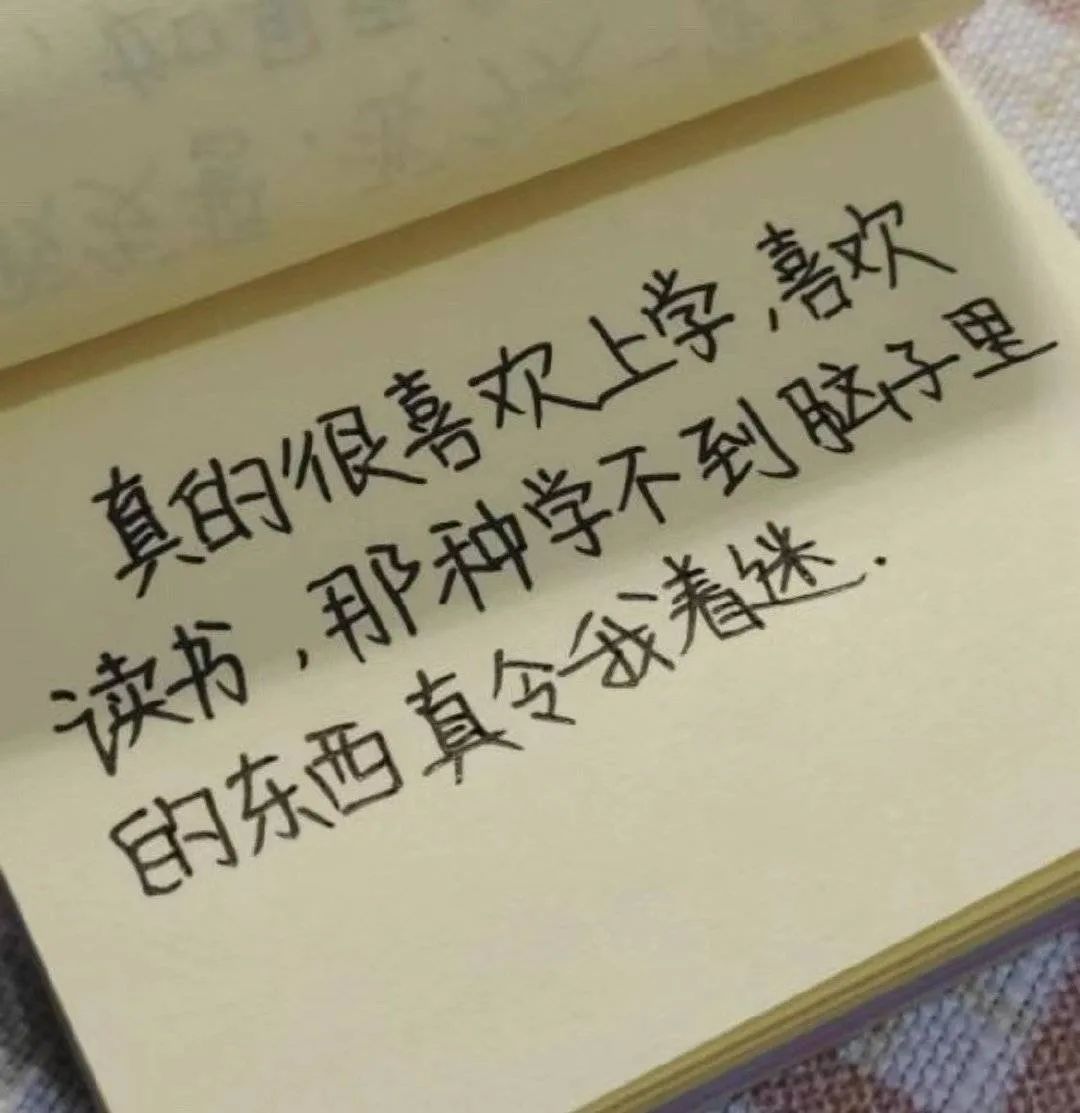 真的很喜欢上学,喜欢
读书,那种学不到脑子里
的东西真令我着迷.